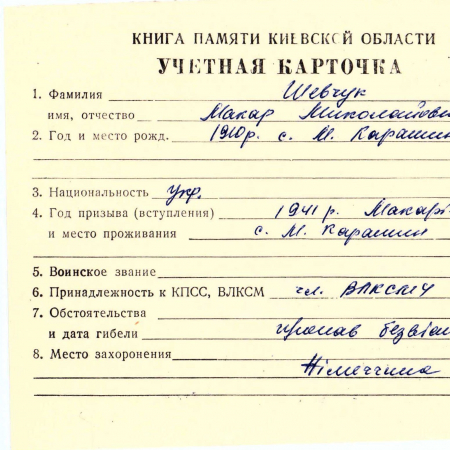 КНИГА ПАМЯТИ КИЕВСКОЙ ОБЛАСТИ
УЧЕТНАЯ КАРТОЧКА
1. Фамилия Шевчук
имя, отчество Макар Миколайови
2. Год и место рожд. 1910р. с. М. Карашин
3. Национальность Укр.
4. Год призыва (вступления) 1941 р. Макарі
и место проживания с. М. Карашин
5. Воинское звание
6. Принадлежность к КПСС, ВЛКСМ чл. ВЛКСМУ
7. Обстоятельства
и дата гибели пропав безвіс
8. Место захоронения
Німеччина